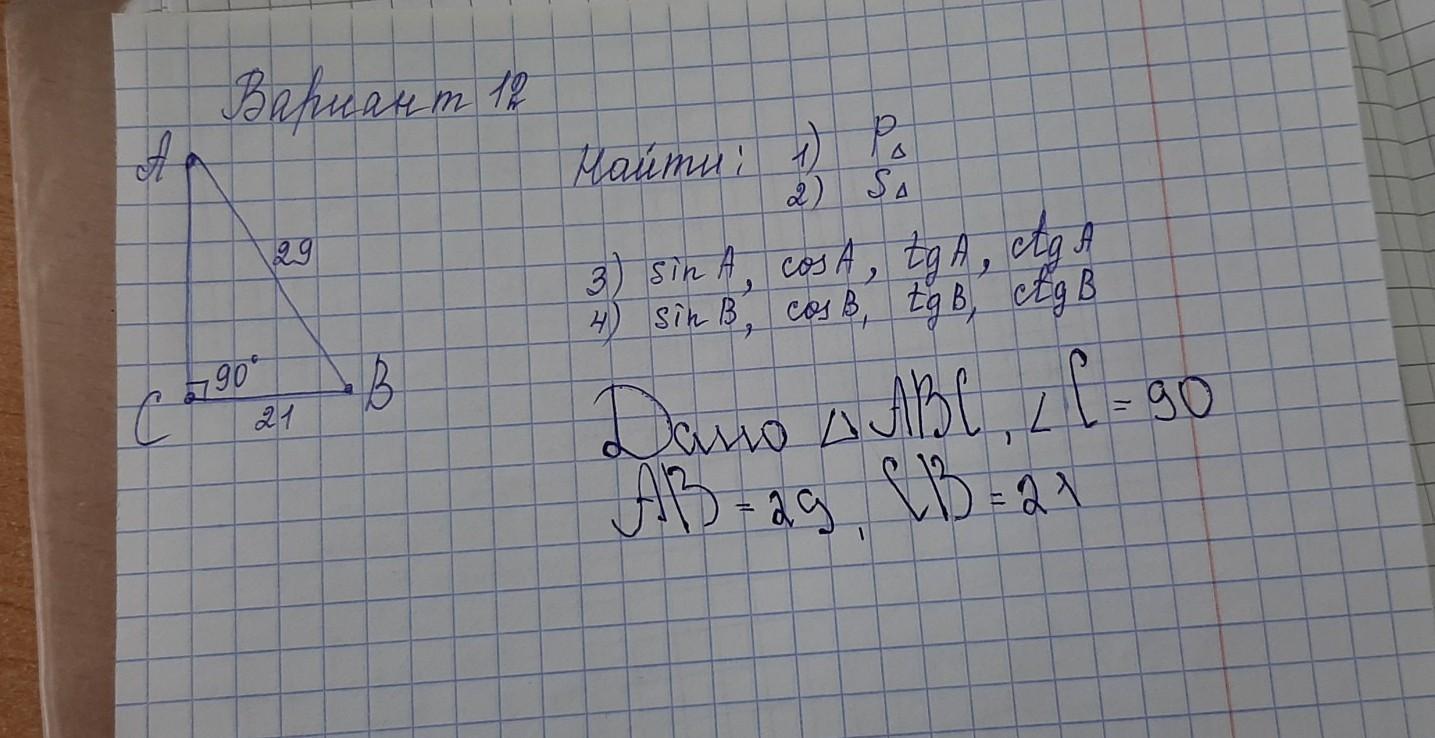 Вариант 12
A
29
90°
C
21
B
Найти: 1) P△
2) S△
3) sin A, cos A, tg A, ctg A
4) sin B, cos B, tg B, ctg B
Дано △ABC, ∠C = 90
AB = 29, CB = 21